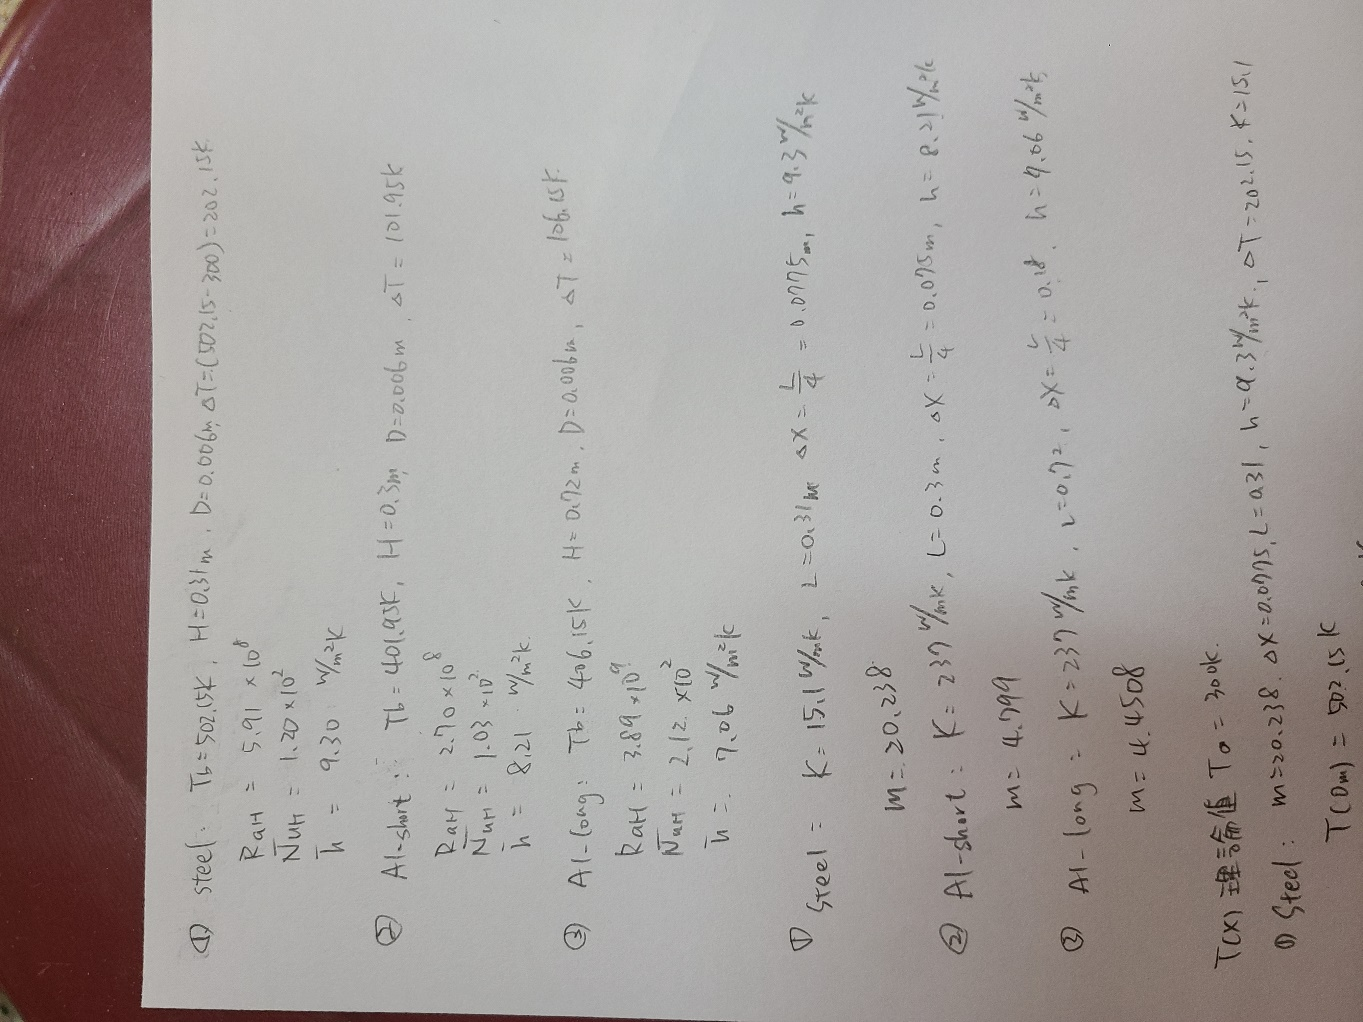 ① steel: Tb=502.15K, H=0.31m, D=0.006m, △T=(502.15-300)=202.15K
RaH = 5.91 ×10⁸
N̅uH = 1.20×10²
h̅ = 9.30 W/m²K
② Al-short: Tb=401.95K, H=0.3m, D=0.006m, △T=101.95K
RaH = 2.70×10⁸
N̅uH = 1.03×10²
h̅ = 8.21 W/m²K
③ Al-long: Tb=406.15K, H=0.72m, D=0.006m, △T=106.15K
RaH = 3.89×10⁹
N̅uH = 2.12×10²
h̅ = 7.06 W/m²K
① Steel: K=15.1W/mK, L=0.31m △X=L/4=0.0775m, h=9.3W/m²K
m=20.238
② Al-short: K=237W/mK, L=0.3m, △X=L/4=0.075m, h=8.21W/m²K
m=4.799
③ Al-long: K=237W/mK, L=0.72, △X=L/4=0.18, h=7.06W/m²K
m=4.4508
T(X)理論值 T₀=300K.
① Steel: m=20.238, △X=0.0775, L=0.31, h=9.3W/m²K, △T=202.15, K=15.1
T(0m) = 502.15K